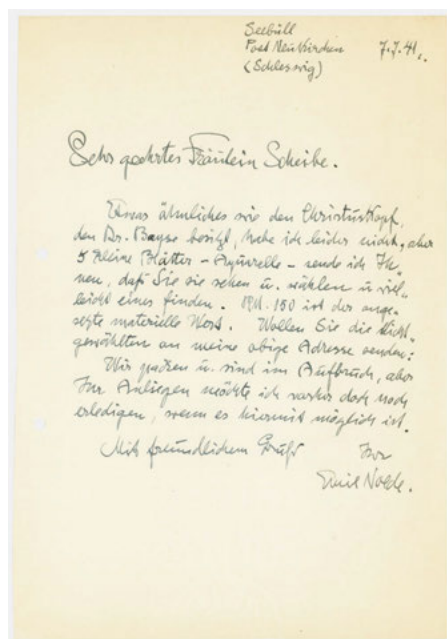 Seebüll
Post Neukirchen 7.7.41.
(Schleswig)
Sehr geehrtes Fräulein Scheibe.
Etwas ähnliches wie den Christuskopf,
den Dr. Bayse besitzt, habe ich leider nicht, aber
5 kleine Blätter - Aquarelle - sende ich Ih-
nen, daß Sie sie sehen u. wählen u. viel-
leicht eines finden. 150 ist der ange-
setzte materielle Wert. Wollen Sie die nicht-
gewählten an meine obige Adresse senden:
Wir packen u. sind im Aufbruch, aber
Ihr Anliegen möchte ich vorher doch noch
erledigen, wenn es hiermit möglich ist.
Mit freundlichem Gruß Ihr
Emil Nolde.